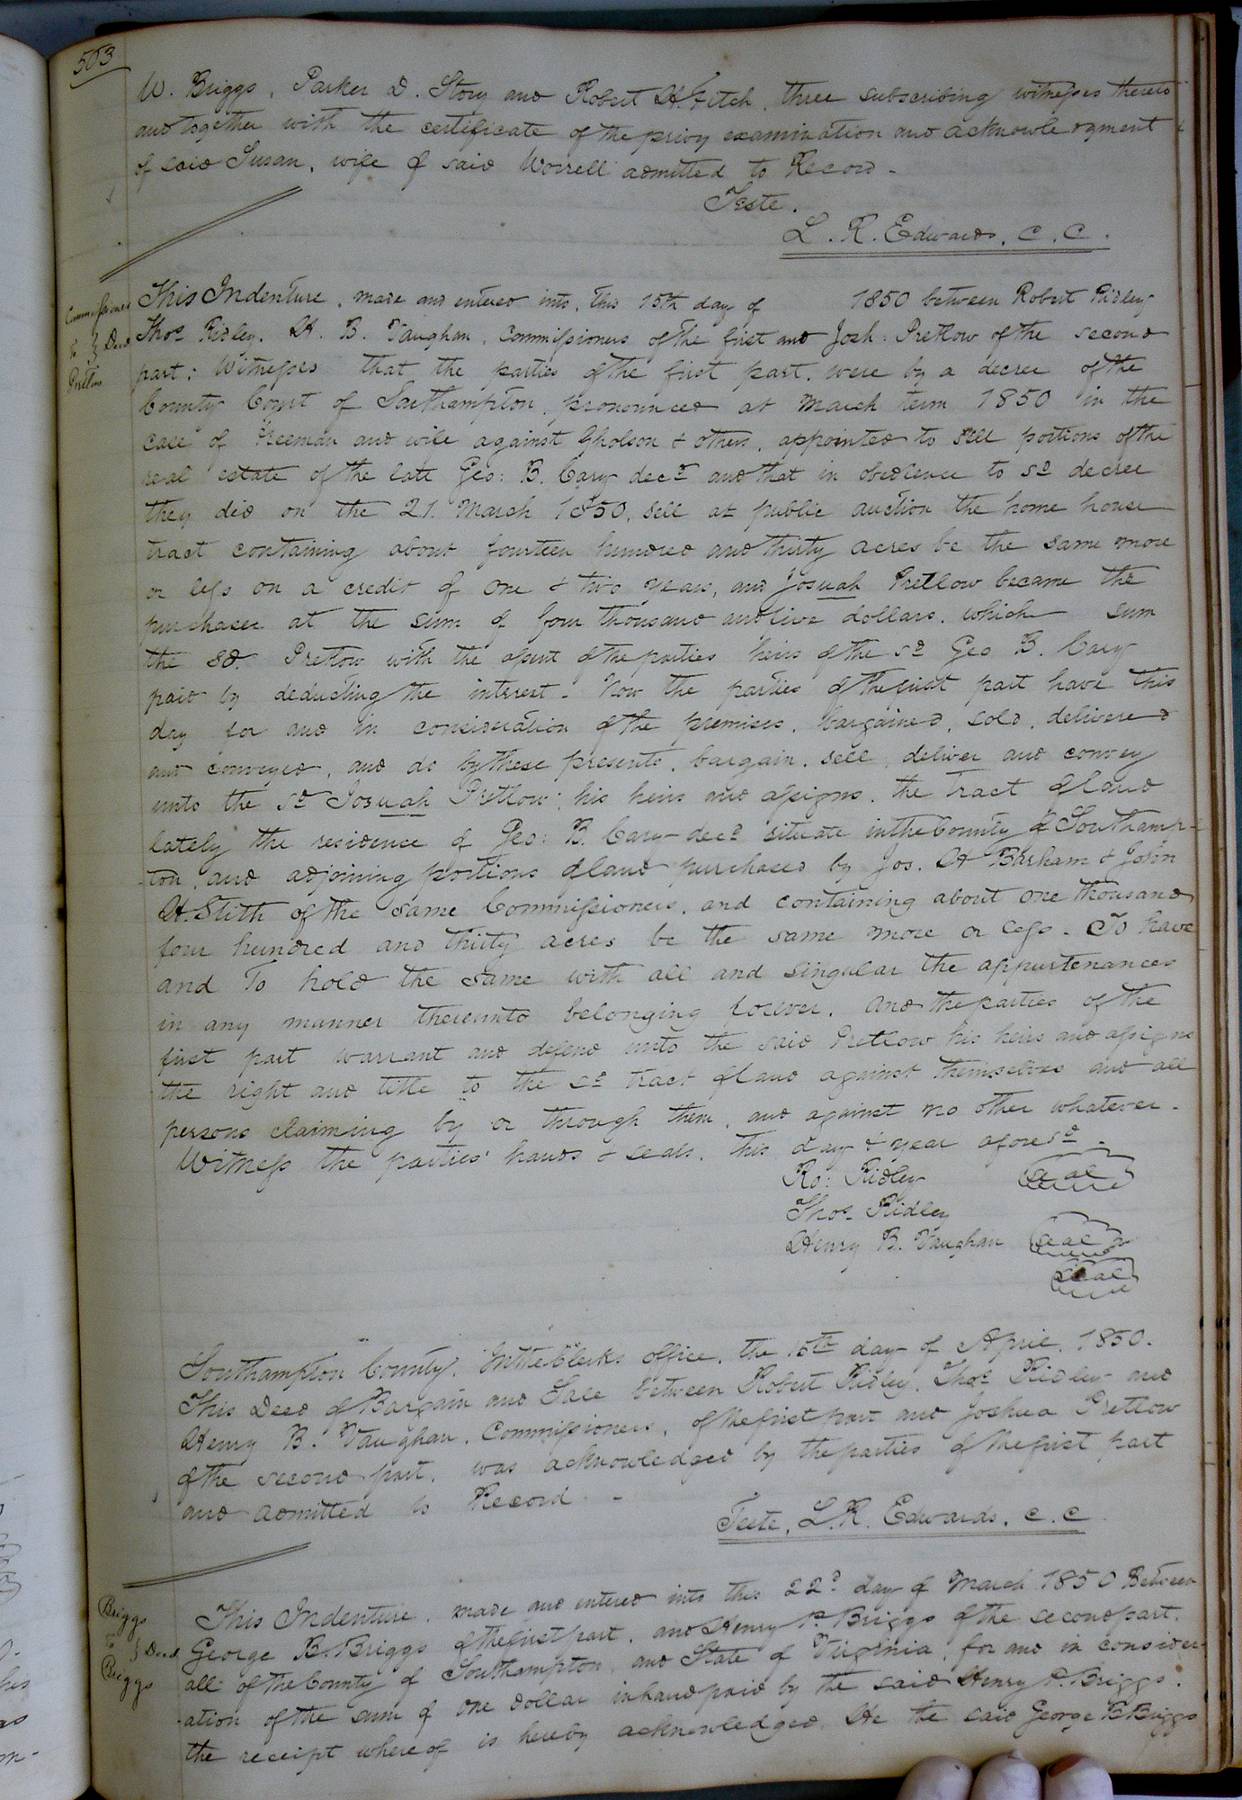 503
W. Briggs, Parker D. Story and Robert H Fitch, three subscribing witnesses thereto
and together with the certificate of the privy examination and acknowledgment
of said Susan, wife of said Worrell admitted to Record -
Teste.
L. R. Edwards, C. C.
Commissioners
to } Deed
Pretlow
This Indenture, made and entered into, this 15th day of 1850 between Robert Ridley
Thos. Ridley, H. B. Vaughan, Commissioners of the first and Josh: Pretlow of the second
part: Witnesses that the parties of the first part, were by a decree of the
County Court of Southampton, pronounced at March term 1850 in the
case of Freeman and wife against Gholson & others, appointed to sell portions of the
real estate of the late Geo: B. Cary decd and that in obedience to sd decree
they did on the 21. March 1850, sell at public auction the home house
tract containing about fourteen hundred and thirty acres be the same more
or less on a credit of one & two years, and Josuah Pretlow became the
purchaser at the sum of four thousand and five dollars, which sum
the sd. Pretlow with the assent of the parties heirs of the sd Geo B. Cary
paid by deducting the interest - Now the parties of the first part have this
day for and in consideration of the premises, bargained, sold, delivered
and conveyed, and do by these presents, bargain, sell, deliver and convey
unto the sd Josuah Pretlow, his heirs and assigns, the tract of land
lately the residence of Geo: B. Cary decd situate in the County of Southamp-
-ton, and adjoining portions of land purchased by Jos. H Barham & John
H. Stith of the same Commissioners, and containing about one thousand
four hundred and thirty acres be the same more or less - To have
and To hold the same with all and singular the appurtenances
in any manner thereunto belonging forever. And the parties of the
first part warrant and defend unto the said Pretlow his heirs and assigns
the right and title to the sd tract of land against themselves and all
persons claiming by or through them, and against no other whatever -
Witness the parties' hands & seals, this day & year aforesd -
Ro: Ridley Seal
Thos. Ridley
Henry B. Vaughan Seal
Seal
Southampton County. In the Clerks office, the 15th day of April, 1850.
This Deed of Bargain and Sale between Robert Ridley, Thos. Ridley and
Henry B. Vaughan, Commissioners, of the first part and Joshua Pretlow
of the second part, was acknowledged by the parties of the first part
and admitted to Record -
Teste, L. R. Edwards, C. C
Briggs
to } Deed
Briggs
This Indenture, made and entered into this 22d day of March 1850 Between
George B. Briggs of the first part, and Henry P. Briggs of the second part,
all of the County of Southampton and State of Virginia, for and in consider-
-ation of the sum of one dollar in hand paid by the said Henry P. Briggs,
the receipt whereof is hereby acknowledged, He the said George B Briggs